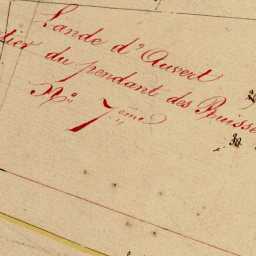 Lande d'Auvert
tier du pendant des Buisse
N.° 7ème